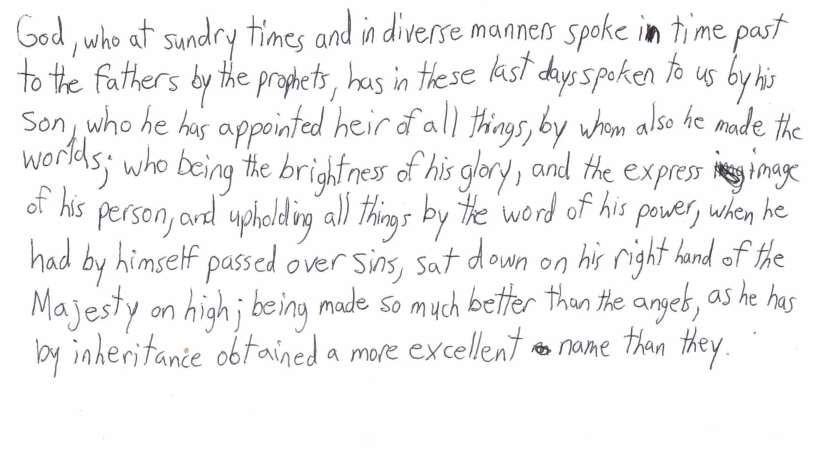 God, who at sundry times and in diverse manners spoke in time past
to the fathers by the prophets, has in these last days spoken to us by his
Son, who he has appointed heir of all things, by whom also he made the
worlds; who being the brightness of his glory, and the express image
of his person, and upholding all things by the word of his power, when he
had by himself passed over sins, sat down on his right hand of the
Majesty on high; being made so much better than the angels, as he has
by inheritance obtained a more excellent name than they.